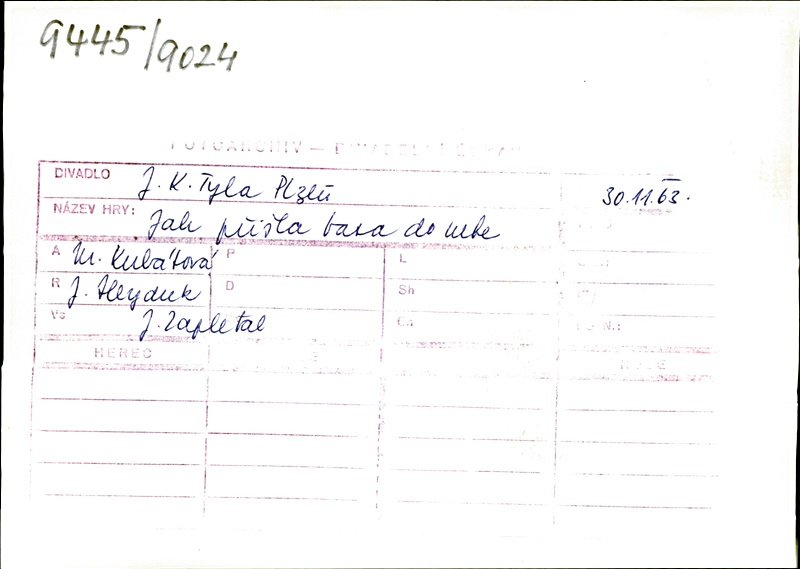 9445/9024
FOTOARCHIV — DIVADELNÍ ÚSTAV
DIVADLO J. K. Tyla Plzeň 30.11.63.
NÁZEV HRY: Jak přišla basa do nebe
A M. Kubátová P L
R J. Heyduk D Sh
Vs J. Zapletal Ch N.:
HEREC ROLE